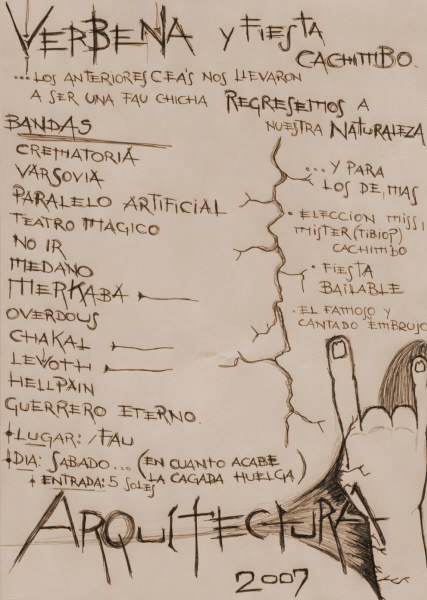 VERBENA Y FIESTA
CACHIMBO.
...LOS ANTERIORES CEA'S NOS LLEVARON
A SER UNA FAU CHICHA REGRESEMOS A
NUESTRA NATURALEZA
BANDAS
CREMATORIA
VARSOVIA
PARALELO ARTIFICIAL
TEATRO MAGICO
NO IR
MEDANO
MERKABA
OVERDOUS
CHAKAL
LEVOTH
HELLPAIN
GUERRERO ETERNO.
...Y PARA
LOS DEMAS
· ELECCION MISS
MISTER (TIBIOP)
CACHIMBO
· FIESTA
BAILABLE
· EL FAMOSO Y
CANTADO EMBRUJO
LUGAR: /FAU
DIA: SABADO... (EN CUANTO ACABE
LA CAGADA HUELGA)
ENTRADA: 5 SOLES
ARQUITECTURA
2007